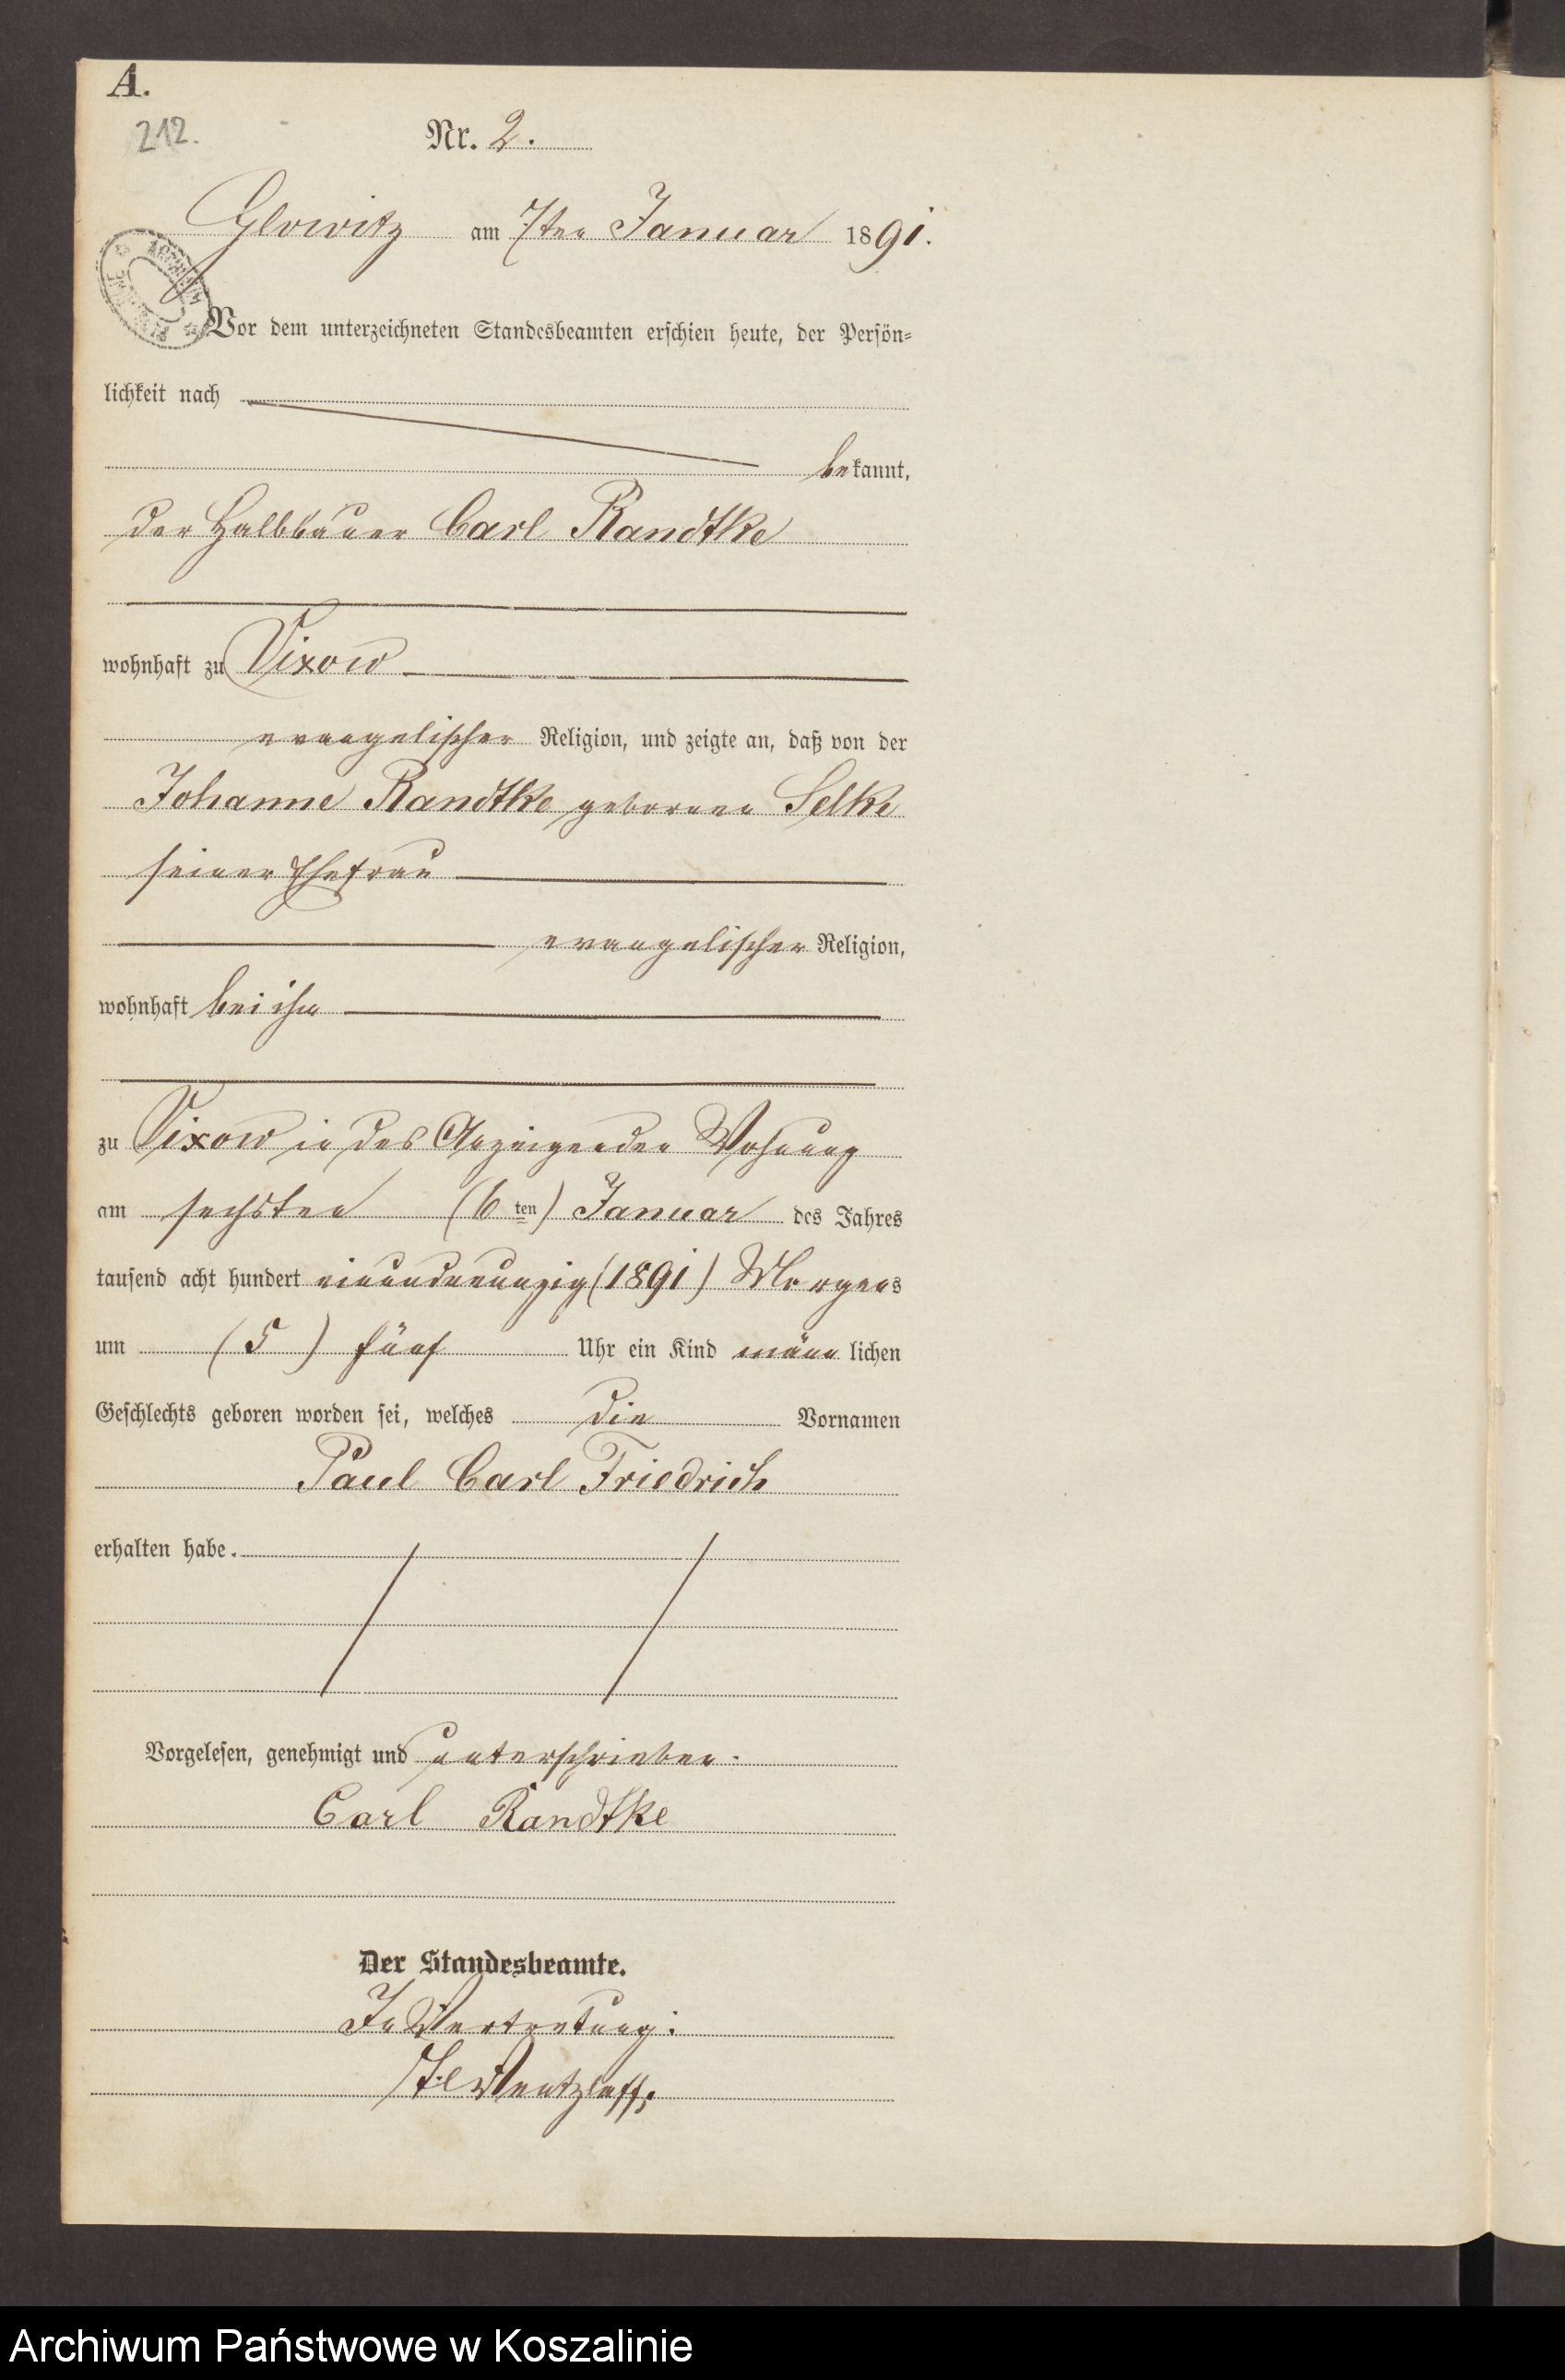 A.
212.
Nr. 2.
Glowitz am 7ten Januar 1891.
Vor dem unterzeichneten Standesbeamten erschien heute, der Persön-
lichkeit nach
bekannt,
der Halbbauer Carl Randtke
wohnhaft zu Vixow
evangelischer Religion, und zeigte an, daß von der
Johanne Randtke geborenen Selke
seiner Ehefrau
evangelischer Religion,
wohnhaft bei ihm
zu Vixow in des Anzeigenden Wohnung
am sechsten (6 ten) Januar des Jahres
tausend acht hundert einundneunzig (1891) Morgens
um (5) fünf Uhr ein Kind männlichen
Geschlechts geboren worden sei, welches die Vornamen
Paul Carl Friedrich
erhalten habe.
Vorgelesen, genehmigt und unterschrieben.
Carl Randtke
Der Standesbeamte.
In Vertretung:
Wentzlaff.
Archiwum Państwowe w Koszalinie